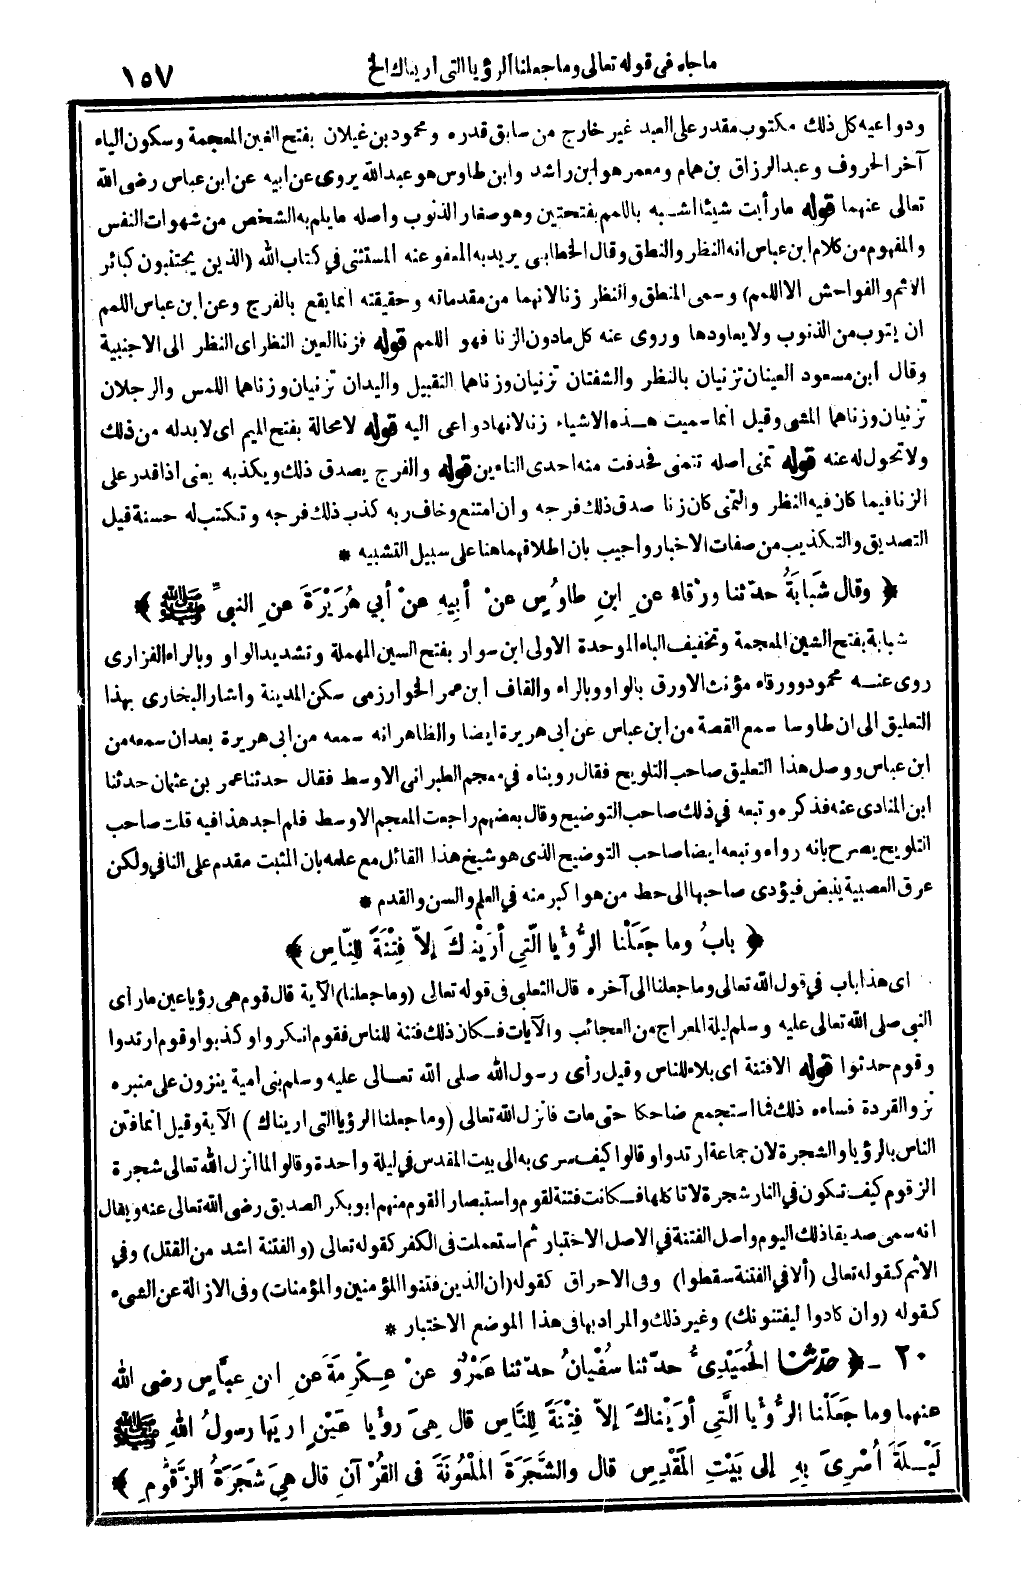 ما جاء في قوله تعالى وما جعلنا الرؤيا التي أريناك الخ
١٥٧
ودواعيه كل ذلك مكتوب مقدر على العبد غير خارج من سابق قدره ومحمود بن غيلان بفتح الغين المعجمة وسكون الياء
آخر الحروف وعبد الرزاق بن همام ومعمر هو ابن راشد وابن طاوس هو عبد الله يروى عن ابيه عن ابن عباس رضى الله
تعالى عنهما قوله ما رأيت شيئا اشبه باللمم بفتحتين وهو صغار الذنوب واصله ما يلم به الشخص من شهوات النفس
والمفهوم من كلام ابن عباس انه النظر والنطق وقال الخطابى يريد به المعفو عنه المستثنى في كتاب الله (الذين يجتنبون كبائر
الاثم والفواحش الا اللمم) وسمى المنطق والنظر زنا لانهما من مقدماته وحقيقته انما يقع بالفرج وعن ابن عباس اللمم
ان يتوب من الذنوب ولا يعاودها وروى عنه كل مادون الزنا فهو اللمم قوله فزنا العين النظر اى النظر الى الاجنبية
وقال ابن مسعود العينان تزنيان بالنظر والشفتان تزنيان وزناهما التقبيل واليدان تزنيان وزناهما اللمس والرجلان
تزنيان وزناهما المشى وقيل انما سميت هذه الاشياء زنا لانها دواعى اليه قوله لا محالة بفتح الميم اى لا بد له من ذلك
ولا تحول له عنه قوله تمنى اصله تتمنى فحذفت منه احدى التاءين قوله والفرج يصدق ذلك ويكذبه يعنى اذا قدر على
الزنا فيما كان فيه النظر والتمنى كان زنا صدق ذلك فرجه وان امتنع وخاف ربه كذب ذلك فرجه وتكتب له حسنة قيل
التصديق والتكذيب من صفات الاخبار واجيب بان اطلاقهما هنا على سبيل التشبيه *
﴿ وقال شَبَابَةُ حدّثنا ورْقاء عنِ ابنِ طاوُسٍ عنْ أبِيهِ عنْ أبي هُرَيْرَةَ عنِ النبيِّ ﷺ ﴾
شبابة بفتح الشين المعجمة وتخفيف الباء الموحدة الاولى ابن سوار بفتح السين المهملة وتشديد الواو وبالراء الفزارى
روى عنه محمود وورقاء مؤنث الاورق بالواو وبالراء والقاف ابن عمر الخوارزمى سكن المدينة واشار البخارى بهذا
التعليق الى ان طاوسا سمع القصة من ابن عباس عن ابى هريرة ايضا والظاهر انه سمعه من ابى هريرة بعد ان سمعه من
ابن عباس ووصل هذا التعليق صاحب التلويح فقال رويناه في معجم الطبرانى الاوسط فقال حدثنا عمر بن عثمان حدثنا
ابن المنادى عنه فذكره وتبعه في ذلك صاحب التوضيح وقال بعضهم راجعت المعجم الاوسط فلم اجد هذا فيه قلت صاحب
التلويح يصرح بانه رواه وتبعه ايضا صاحب التوضيح الذى هو شيخ هذا القائل مع علمه بان المثبت مقدم على النافي ولكن
عرق العصبية ينبض فيؤدى صاحبها الى حط من هو اكبر منه في العلم والسن والقدم *
﴿ بابُ وما جَعَلْنا الرُّؤْيا الّتي أرَيْنَاكَ إلاّ فِتْنَةً لِلنّاسِ ﴾
اى هذا باب في قول الله تعالى وما جعلنا الى آخره قال الثعلبى في قوله تعالى (وما جعلنا) الآية قال قوم هى رؤيا عين ما رأى
النبى صلى الله تعالى عليه وسلم ليلة المعراج من العجائب والآيات فكان ذلك فتنة للناس فقوم انكروا وكذبوا وقوم ارتدوا
وقوم حدثوا قوله الا فتنة اى بلاء للناس وقيل رأى رسول الله صلى الله تعالى عليه وسلم بنى امية ينزون على منبره
نزو القردة فساءه ذلك فما استجمع ضاحكا حتى مات فانزل الله تعالى (وما جعلنا الرؤيا التى اريناك) الآية وقيل انما فتن
الناس بالرؤيا والشجرة لان جماعة ارتدوا وقالوا كيف سرى به الى بيت المقدس في ليلة واحدة وقالوا لما انزل الله تعالى شجرة
الزقوم كيف تكون في النار شجرة لا تاكلها فكانت فتنة لقوم واستبصار القوم منهم ابو بكر الصديق رضى الله تعالى عنه ويقال
انه سمى صديقا ذلك اليوم واصل الفتنة في الاصل الاختبار ثم استعملت في الكفر كقوله تعالى (والفتنة اشد من القتل) وفي
الاثم كقوله تعالى (ألا في الفتنة سقطوا) وفى الاحراق كقوله (ان الذين فتنوا المؤمنين والمؤمنات) وفى الازالة عن الشىء
كقوله (وان كادوا ليفتنونك) وغير ذلك والمراد بها فى هذا الموضع الاختبار *
٢٠ - ﴿ حدّثنا الحُمَيْدِيُّ حدّثنا سُفْيانُ حدّثنا عَمْرٌو عنْ عِكْرِمَةَ عنِ ابنِ عبَّاسٍ رضى الله
عنهما وما جَعَلْنا الرُّؤْيا الَّتي أرَيْناكَ إلاّ فِتْنَةً لِلنَّاسِ قال هِيَ رؤْيا عَيْنٍ أُرِيَها رسولُ اللهِ ﷺ
لَيْلَةَ أُسْرِىَ بِهِ إلى بَيْتِ المَقْدِسِ قال والشَّجَرَةَ المَلْعُونَةَ فى القُرْآنِ قال هِيَ شَجَرَةُ الزَّقُّومِ ﴾